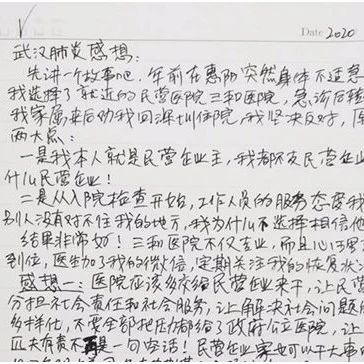 Date 2020
武汉肺炎感想:
先讲一个故事吧,年前在惠阳突然身体不适急
我选择了就近的民营医院三和医院,急诊后转
我家属来后劝我回深圳住院,我坚决反对,
两大点:
一是我本人就是民营企业主,我都不支民营企业
什么民营企业!
二是从入院检查开始,工作人员的服务态度我
别人没有对不住我的地方,我为什么不选择相信他
结果非常好!三和医院不仅专业,而且心理
到位,医生加了我的微信,定期关注我的恢复状
感想一:医院应该多交给民营企业来干,让民营
分担社会责任和社会服务,让解决社会问题
多样化,不要全部把压力都给了政府公立医院,让
匹夫有责不是一句空话!民营企业家也可以干大事